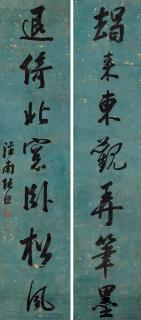 朅来東觀弄筆墨
退倚北窗卧松風
涇南張照